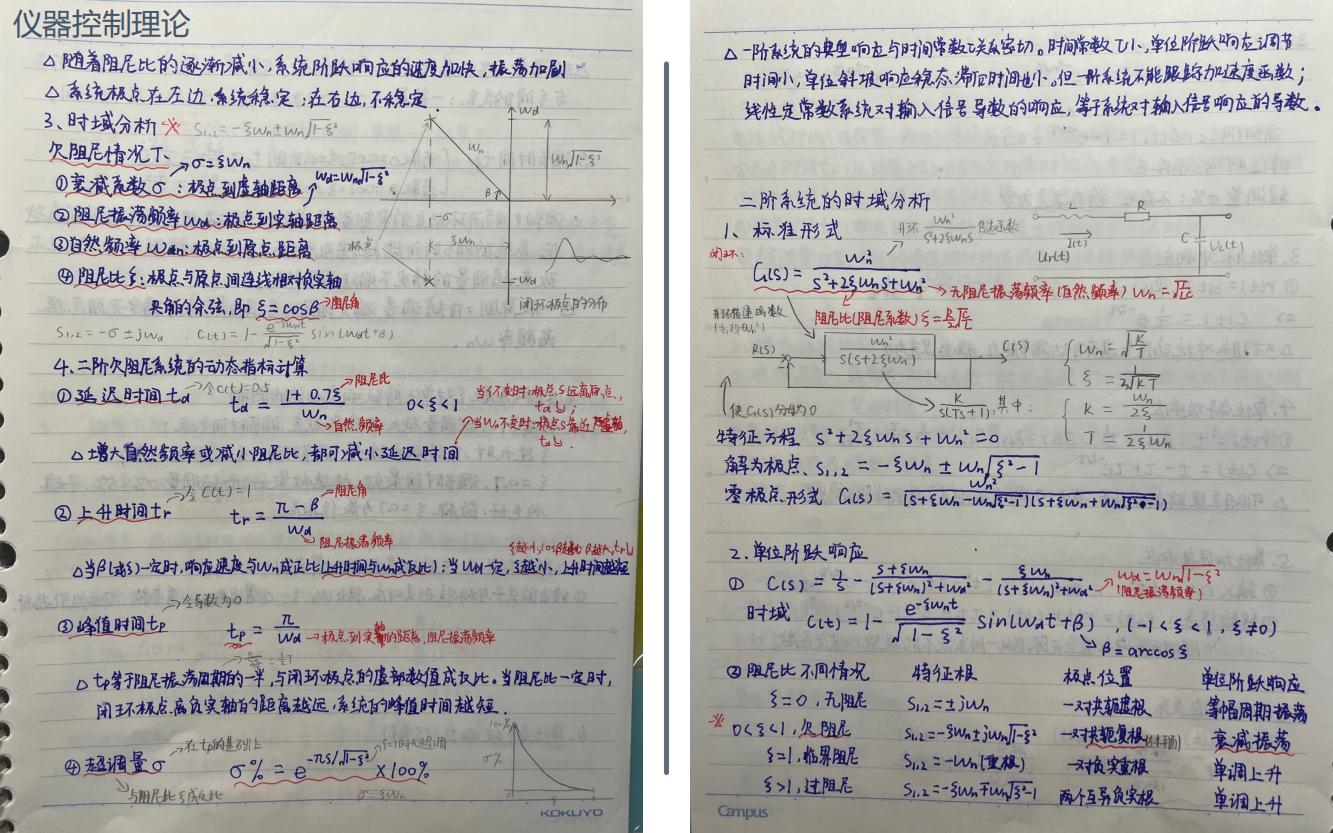 仪器控制理论
△ 随着阻尼比的逐渐减小,系统阶跃响应的速度加快,振荡加剧
△ 系统极点在左边,系统稳定;在右边,不稳定
3、时域分析 ※ S₁,₂=-ξωn±ωn√1-ξ²
欠阻尼情况下、
→σ=ξωn
①衰减系数σ:极点到虚轴距离
ωd=ωn√1-ξ²
②阻尼振荡频率ωd:极点到实轴距离
③自然频率ωn:极点到原点距离
④阻尼比ξ:极点与原点间连线相对负实轴
夹角的余弦,即 ξ=cosβ →阻尼角
S₁,₂=-σ±jωd . C(t)=1-e^-ξωnt/√1-ξ² sin(ωdt+β)
ωd
ωn
ωn√1-ξ²
β
-σ
极点
ξωn
-ωd
闭环极点的分布
4、二阶欠阻尼系统的动态指标计算
①延迟时间td →令C(t)=0.5
td = 1+0.7ξ/ωn 0<ξ<1
→阻尼比
→自然频率
当ξ不变时:极点S远离原点,
td↓;
当ωn不变时:极点S靠近虚轴,
td↓.
△增大自然频率或减小阻尼比,都可减小延迟时间
→令C(t)=1
②上升时间tr tr = π-β/ωd
→阻尼角
→阻尼振荡频率
△当β(或ξ)一定时,响应速度与ωn成正比(上升时间与ωn成反比);当ωd一定,ξ越小,上升时间越短
→令导数为0
③峰值时间tp tp = π/ωd →极点到实轴的距离,阻尼振荡频率
△tp等于阻尼振荡周期的一半,与闭环极点的虚部数值成反比。当阻尼比一定时,
闭环极点离负实轴的距离越远,系统的峰值时间越短.
④超调量σ →在tp的基础上
σ%=e^-πξ/√1-ξ² ×100%
与阻尼比ξ成反比
σ=ξωn
100%
σ%
ξ
KOKUYO
△一阶系统的典型响应与时间常数τ关系密切。时间常数τ小,单位阶跃响应调节
时间小,单位斜坡响应稳态滞后时间也小。但一阶系统不能跟踪加速度函数;
线性定常数系统对输入信号导数的响应,等于系统对输入信号响应的导数.
二阶系统的时域分析
1、标准形式
开环 ωn²/s²+2ξωns 传递函数
闭环:
G(s)= ωn²/s²+2ξωns+ωn² →无阻尼振荡频率(自然频率) ωn=1/√LC
阻尼比(阻尼系数) ξ=R/2√C/L
L
R
i(t)
Ur(t)
C
Uc(t)
开环传递函数
R(s)
ωn²/s(s+2ξωn)
C(s)
K/s(Ts+1),其中:
{ωn=√K/T
ξ=1/2√KT
{K=ωn/2ξ
T=1/2ξωn
使G(s)分母为0
特征方程 s²+2ξωns+ωn²=0
解为极点、S₁,₂=-ξωn±ωn√ξ²-1
零极点形式 G(s)= ωn²/(s+ξωn-ωn√ξ²-1)(s+ξωn+ωn√ξ²-1)
2.单位阶跃响应
① C(s)=1/s-s+ξωn/(s+ξωn)²+ωd²-ξωn/(s+ξωn)²+ωd² →ωd=ωn√1-ξ²
(阻尼振荡频率)
时域 C(t)=1-e^-ξωnt/√1-ξ² sin(ωdt+β),(-1<ξ<1,ξ≠0)
β=arccosξ
②阻尼比不同情况 特征根 极点位置 单位阶跃响应
ξ=0,无阻尼 S₁,₂=±jωn 一对共轭虚根 等幅周期振荡
※ 0<ξ<1,欠阻尼 S₁,₂=-ξωn±jωn√1-ξ² 一对共轭复根(左半平面) 衰减振荡
ξ=1,临界阻尼 S₁,₂=-ωn(重根) 一对负实重根 单调上升
ξ>1,过阻尼 S₁,₂=-ξωn∓ωn√ξ²-1 两个互异负实根 单调上升
Campus